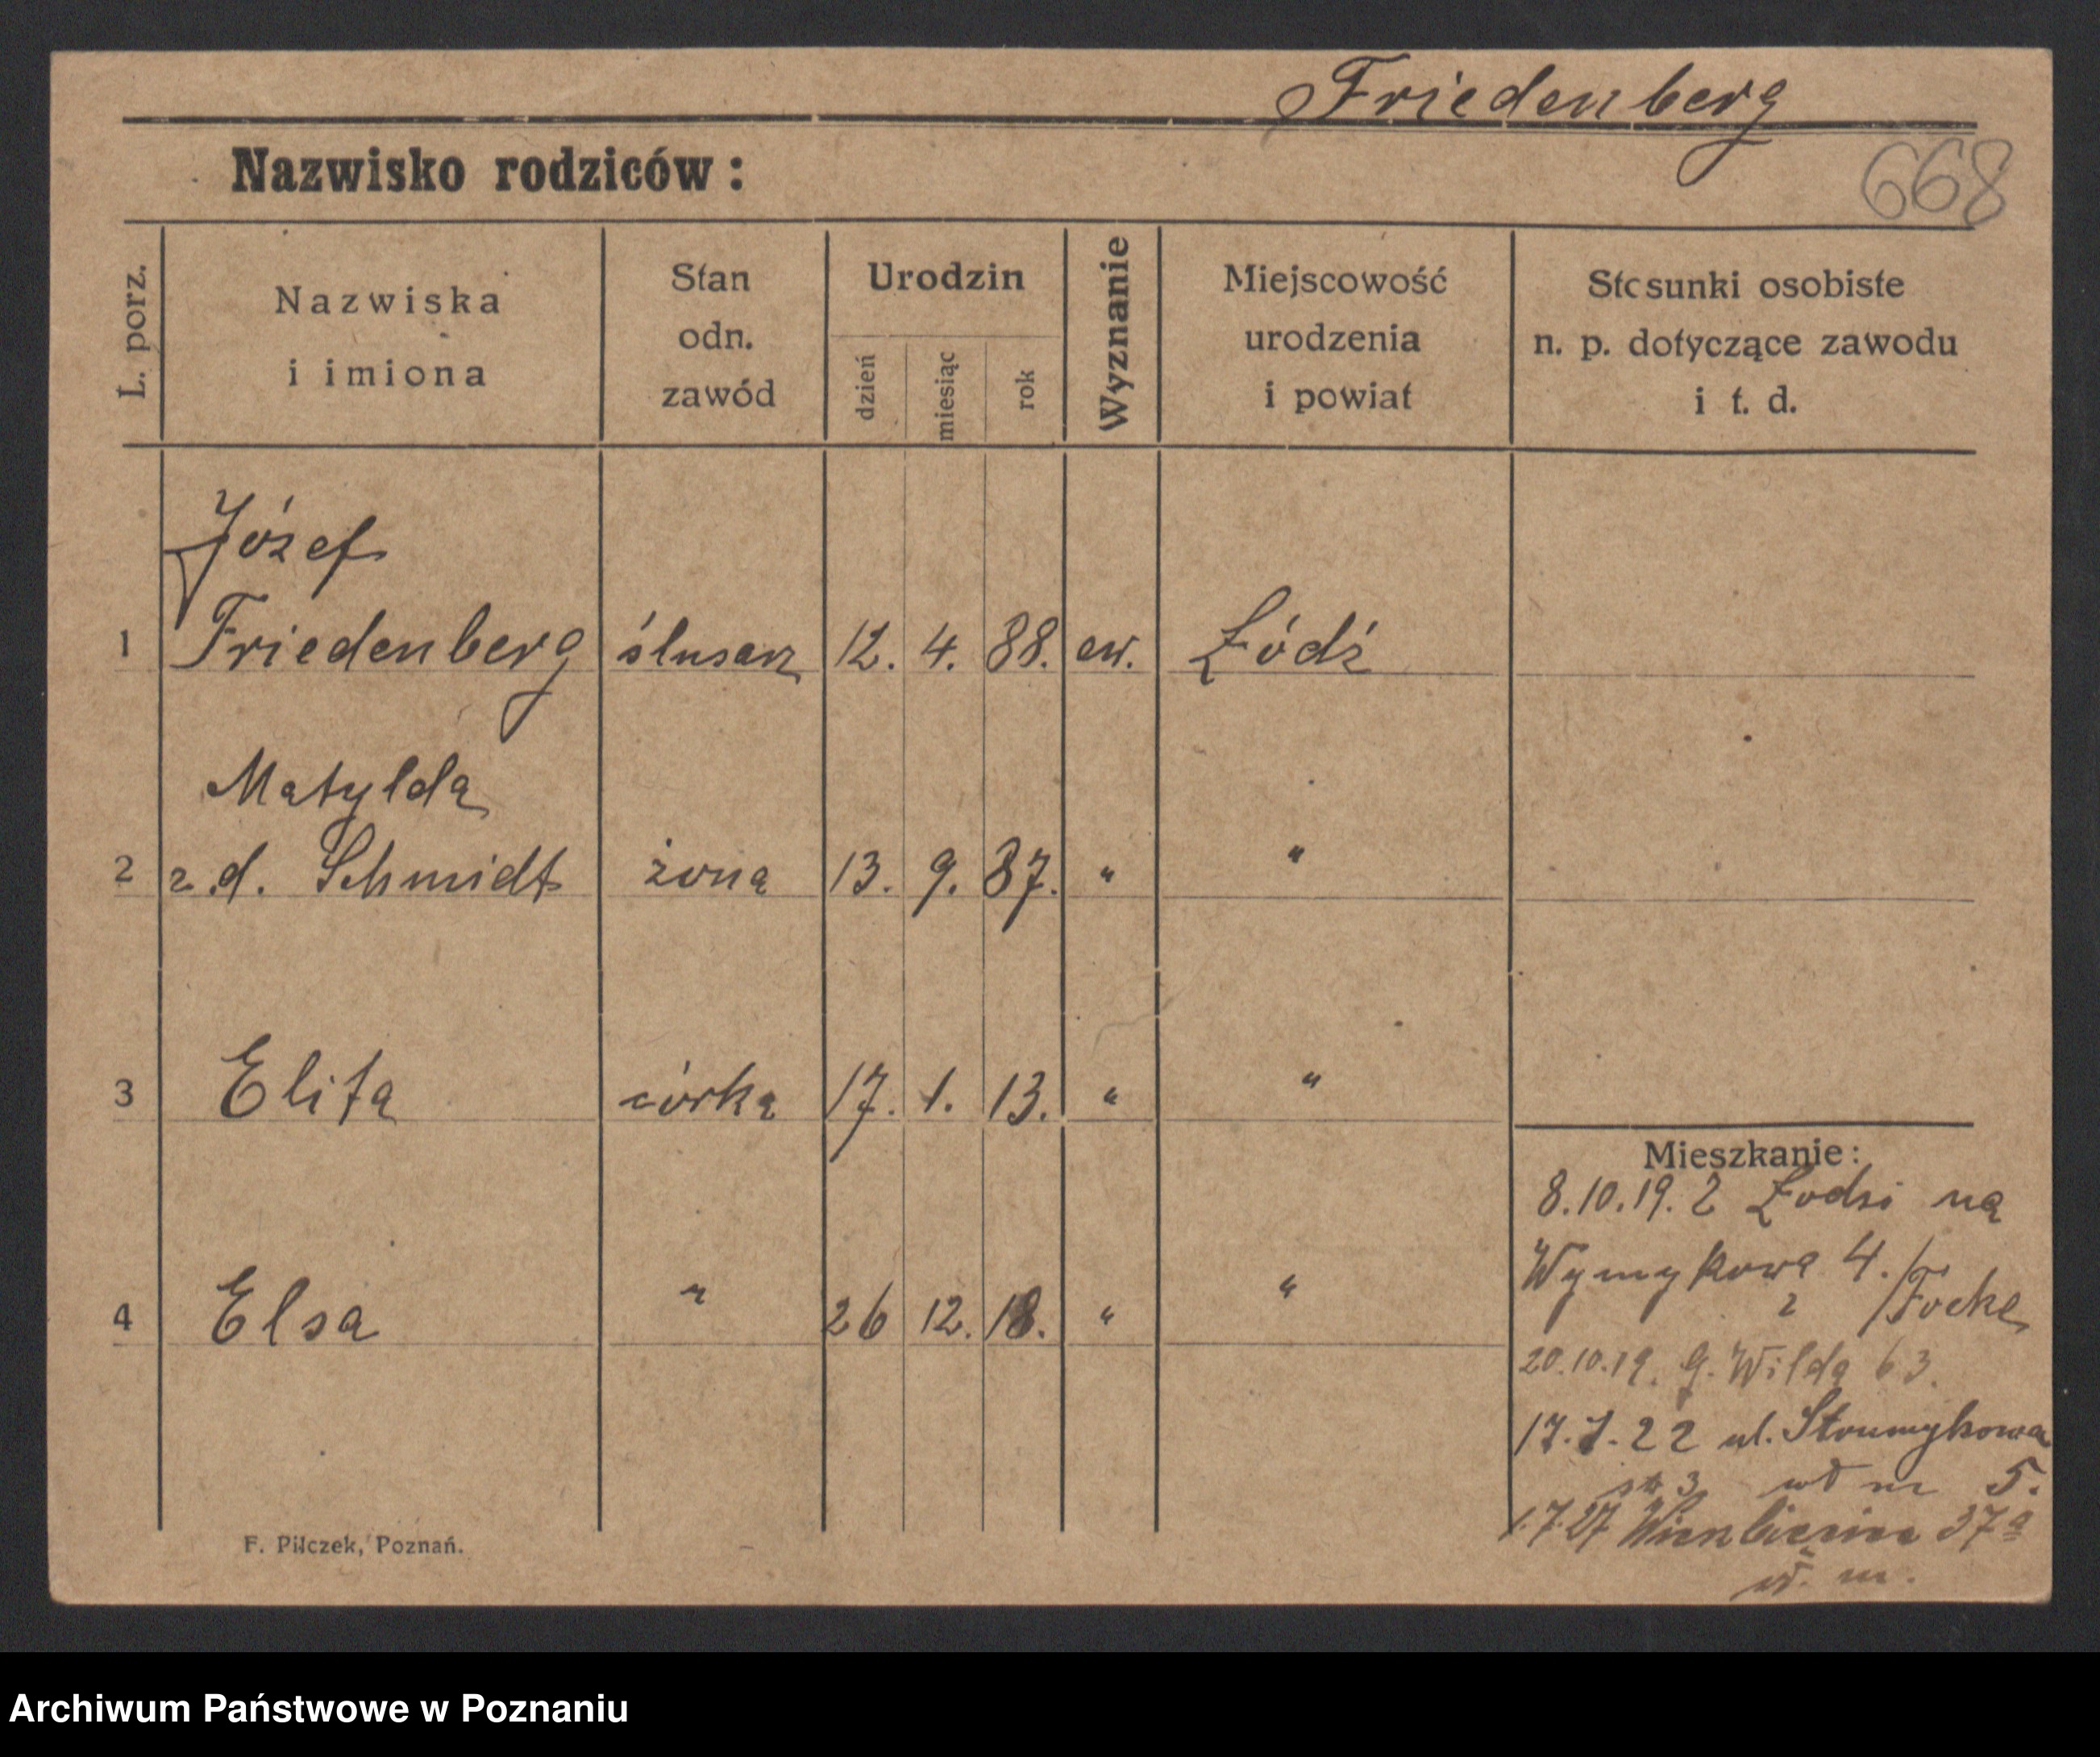 Friedenberg
Nazwisko rodziców:
668
L. porz.
Nazwiska
i imiona
Stan
odn.
zawód
Urodzin
dzień
miesiąc
rok
Wyznanie
Miejscowość
urodzenia
i powiat
Stosunki osobiste
n. p. dotyczące zawodu
i t. d.
Józef
1 Friedenberg ślusarz 12. 4. 88. ew. Łódź
Matylda
2 z d. Schmidt żona 13. 9. 87. " "
3 Elita córka 17. 1. 13. " "
4 Elsa " 26 12. 18. " "
Mieszkanie:
8.10.19. z Łodzi na
4. /Focke
20.10.19. G. Wilda 63.
17.7.22 ul. Strumykowa
3 5.
1.7.27 37a
F. Pilczek, Poznań.
Archiwum Państwowe w Poznaniu